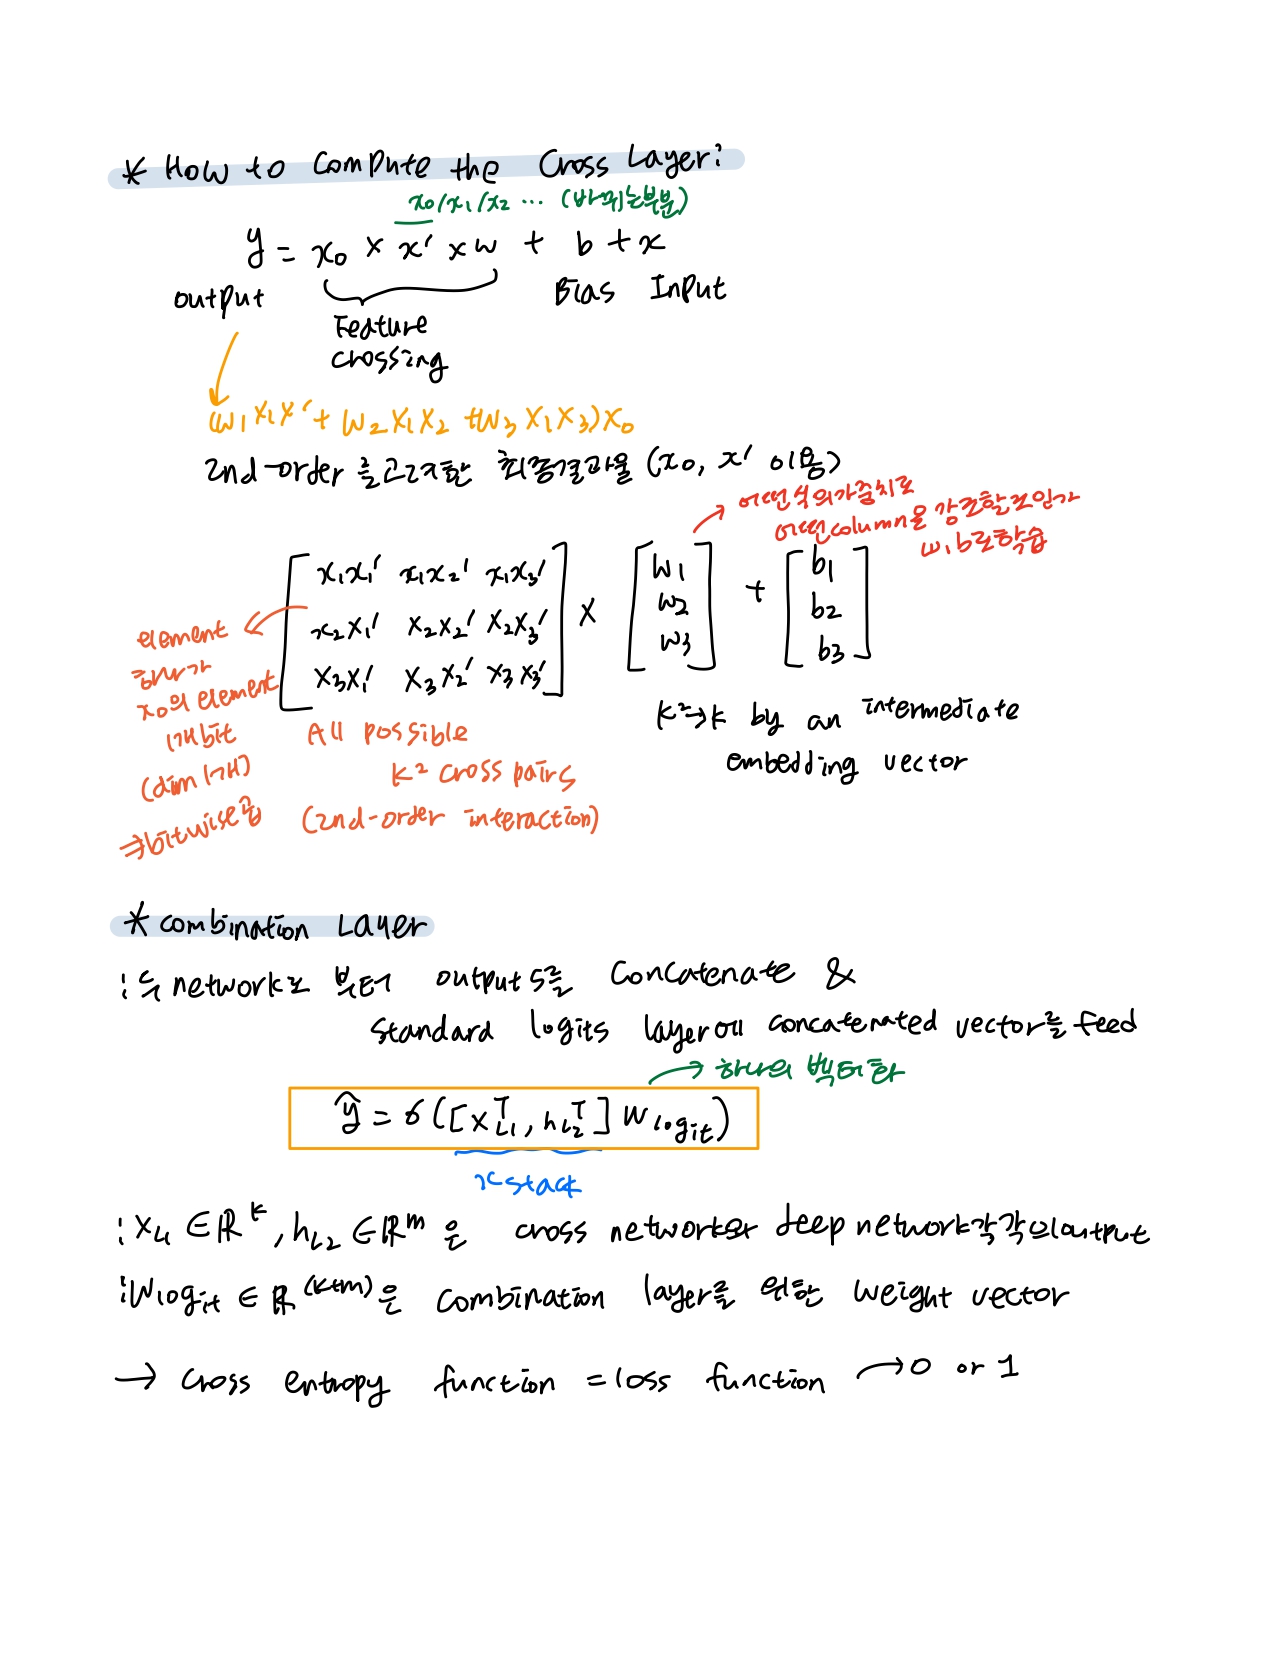 * How to compute the Cross Layer?
x0/x1/x2 ... (바뀌는부분)
y = x0 × x' × w + b + x
output
Bias Input
Feature
crossing
(w1x1x'+ w2x1x2 +w3x1x3)x0
2nd-order를고려한 최종결과물 (x0, x' 이용)
어떤식의가중치로
어떤column을 강조할포인가
w, b로학습
[x1x1' x1x2' x1x3'] × [w1] + [b1]
[x2x1' x2x2' x2x3'] [w2] [b2]
[x3x1' x3x2' x3x3'] [w3] [b3]
element
하나가
x0의 element
1개bit
(dim 1개)
⇒bitwise곱
All possible
K² cross pairs
(2nd-order interaction)
K²→K by an intermediate
embedding vector
* combination Layer
: 두 network로 부터 output들를 concatenate &
standard logits layer에 concatenated vector를 feed
→ 하나의 벡터화
ŷ = σ([x_{L1}^T, h_{L2}^T] W_{logit})
x stack
: x_{L1} ∈ ℝ^k, h_{L2} ∈ ℝ^m 은 cross network와 deep network각각의output
: W_{logit} ∈ ℝ^{(k+m)} 은 combination layer를 위한 weight vector
→ cross entropy function = loss function → 0 or 1